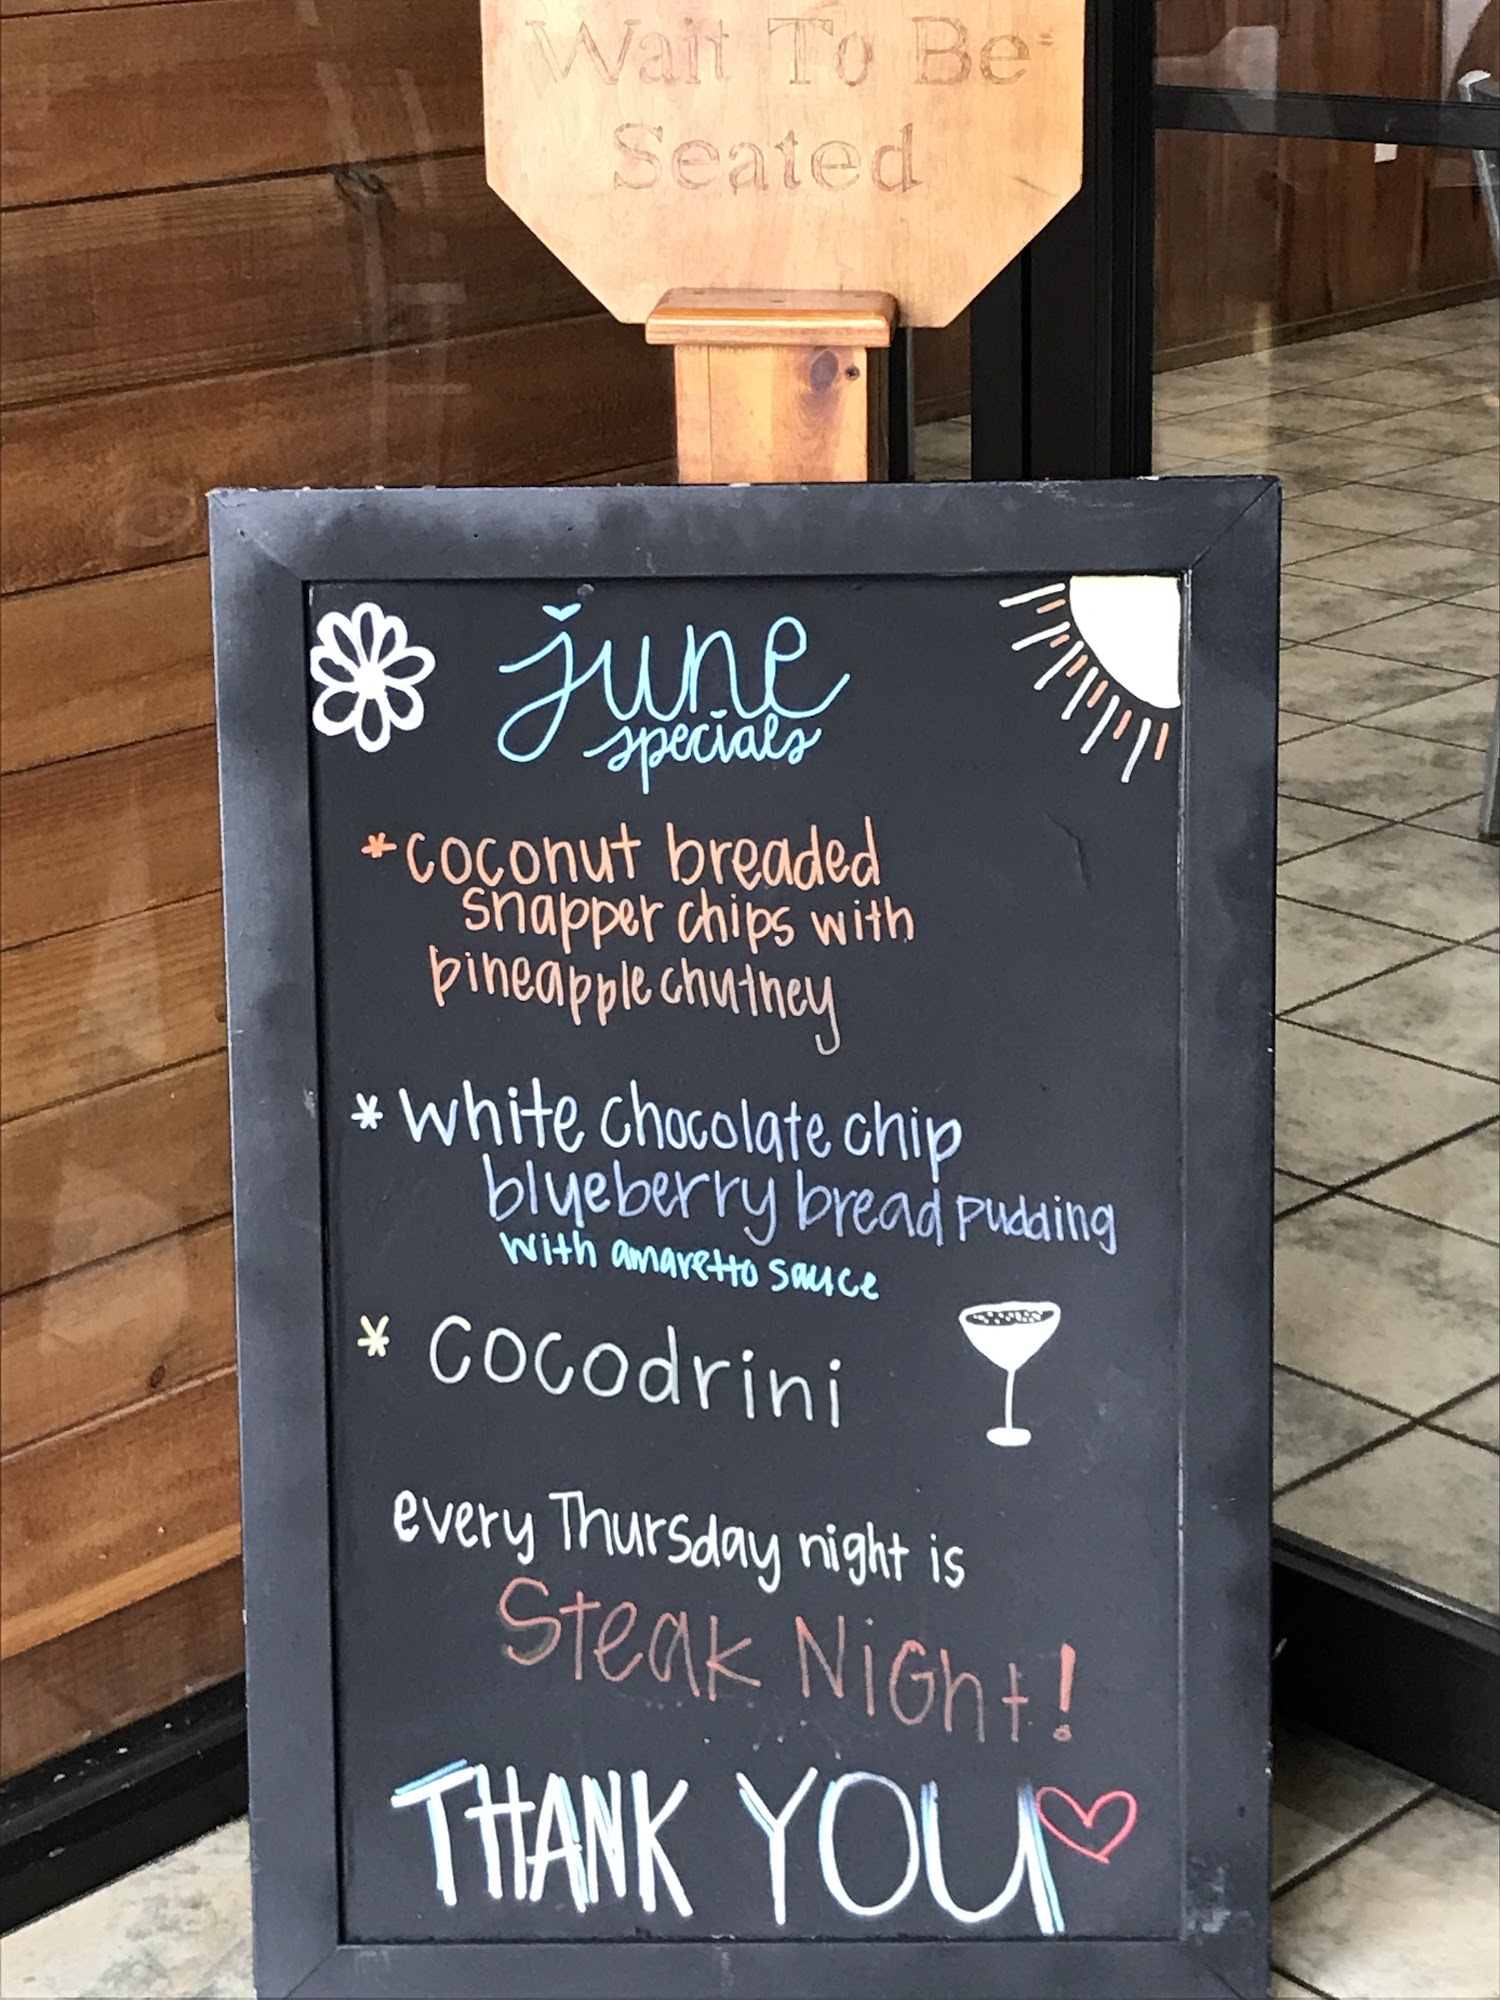 Wait To Be
Seated
june
specials
* coconut breaded
snapper chips with
pineapple chutney
* white chocolate chip
blueberry bread pudding
with amaretto sauce
* cocodrini
every Thursday night is
Steak Night!
THANK YOU